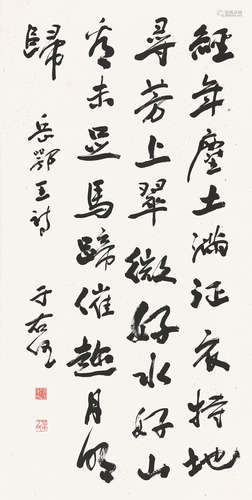 經年塵土滿征衣特地
尋芳上翠微好水好山
看未足馬蹄催趁月明
歸
岳鄂王詩
于右任